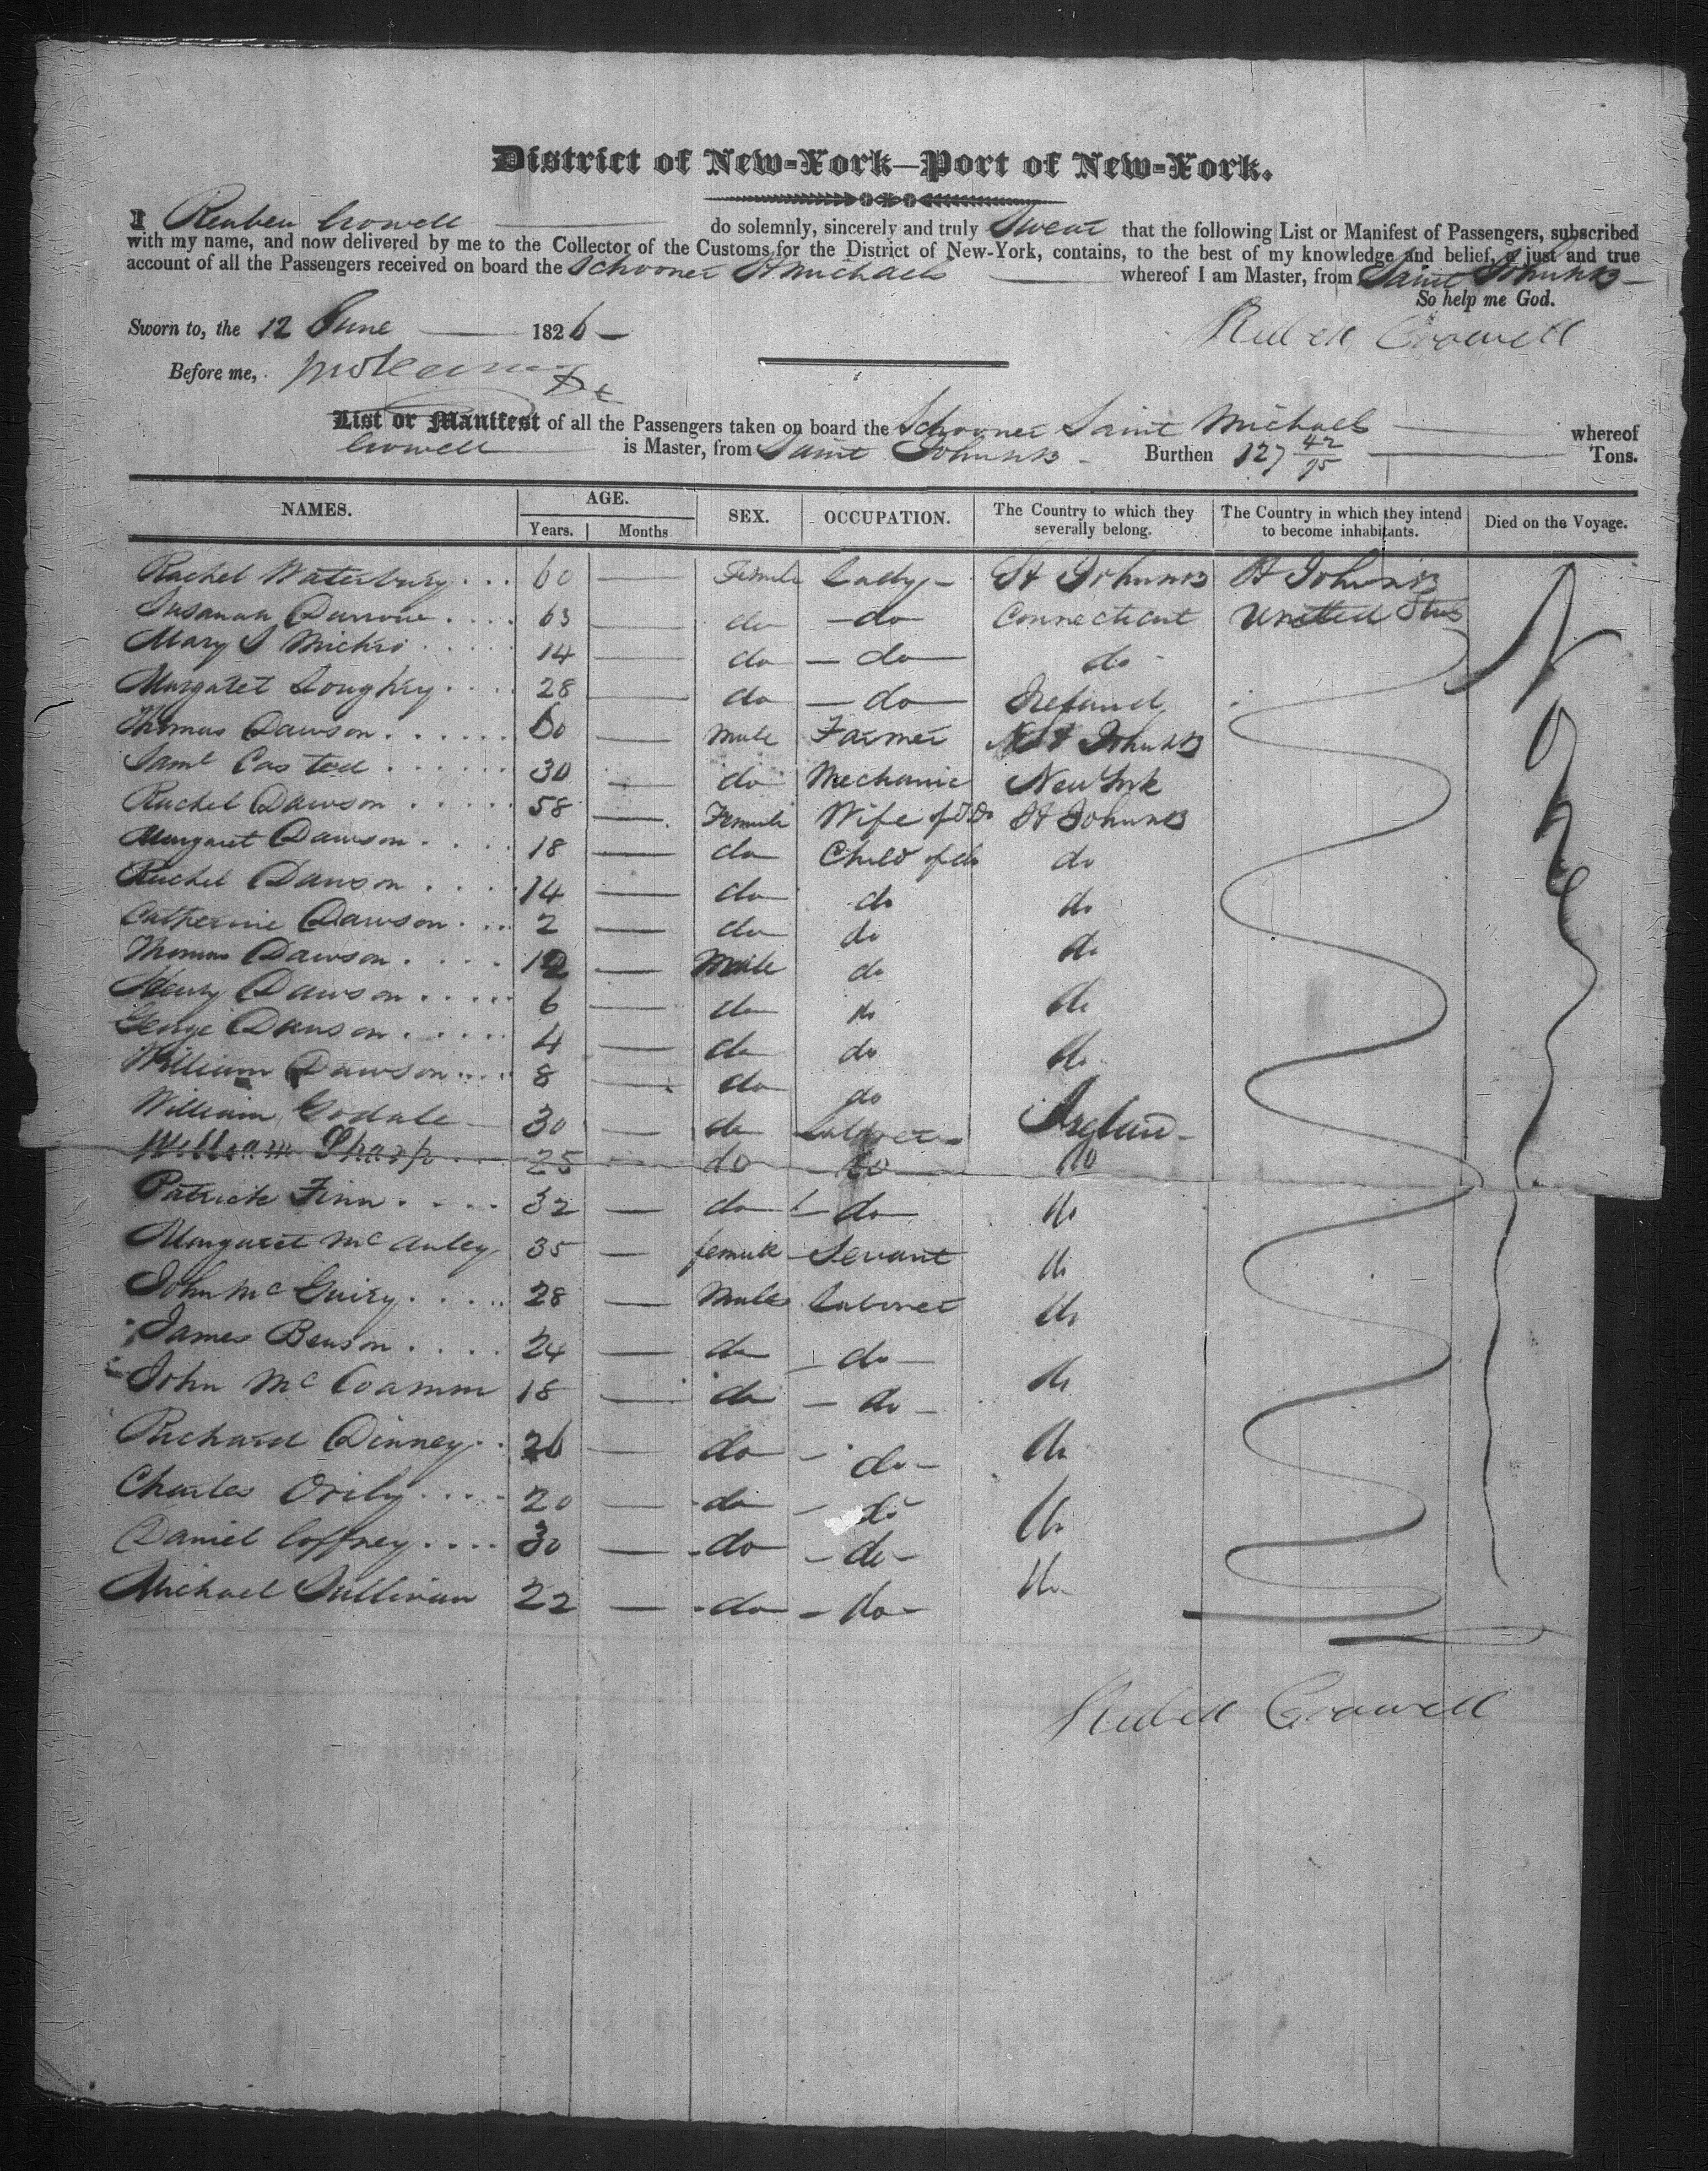 District of New-York—Port of New-York.
I Reuben Crowell do solemnly, sincerely and truly Swear that the following List or Manifest of Passengers, subscribed
with my name, and now delivered by me to the Collector of the Customs for the District of New-York, contains, to the best of my knowledge and belief, a just and true
account of all the Passengers received on board the Schooner St Michaels whereof I am Master, from Saint Johns NB
So help me God.
Sworn to, the 12 June 1826 Reuben Crowell
Before me,
List or Manifest of all the Passengers taken on board the Schooner Saint Michaels whereof
Crowell is Master, from Saint Johns NB Burthen 127 42/95 Tons.
NAMES. AGE. SEX. OCCUPATION. The Country to which they severally belong. The Country in which they intend to become inhabitants. Died on the Voyage.
Years. Months
Rachel Waterbury 60 Female Lady St Johns NB St Johns NB
Susanah Durrow 63 do do Connecticut United Stats
Mary S 14 do do do
Margaret Loughry 28 do do Ireland
Thomas Dawson 60 Male Farmer St Johns NB
Saml 30 do Mechanic New York
Rachel Dawson 58 Female Wife of T.D. St Johns NB
Margaret Dawson 18 do Child of do do
Rachel Dawson 14 do do do
Catherine Dawson 2 do do do
Thomas Dawson 12 Male do
Henry Dawson 6 do do do
George Dawson 4 do do do
William Dawson 8 do do
William Godale 30 do Labourer Ireland
William Sharp 25 do do do
Patrick Finn 32 do do do
Margaret McAuley 35 female Servant do
John McGuiry 28 Male Laborer do
James Benson 24 do do do
John 18 do do
Richard Dinney 26 do do do
Charles Orily 20 do do do
Daniel Coffrey 30 do do
Michael Sullivan 22 do do do
None
Reuben Crowell